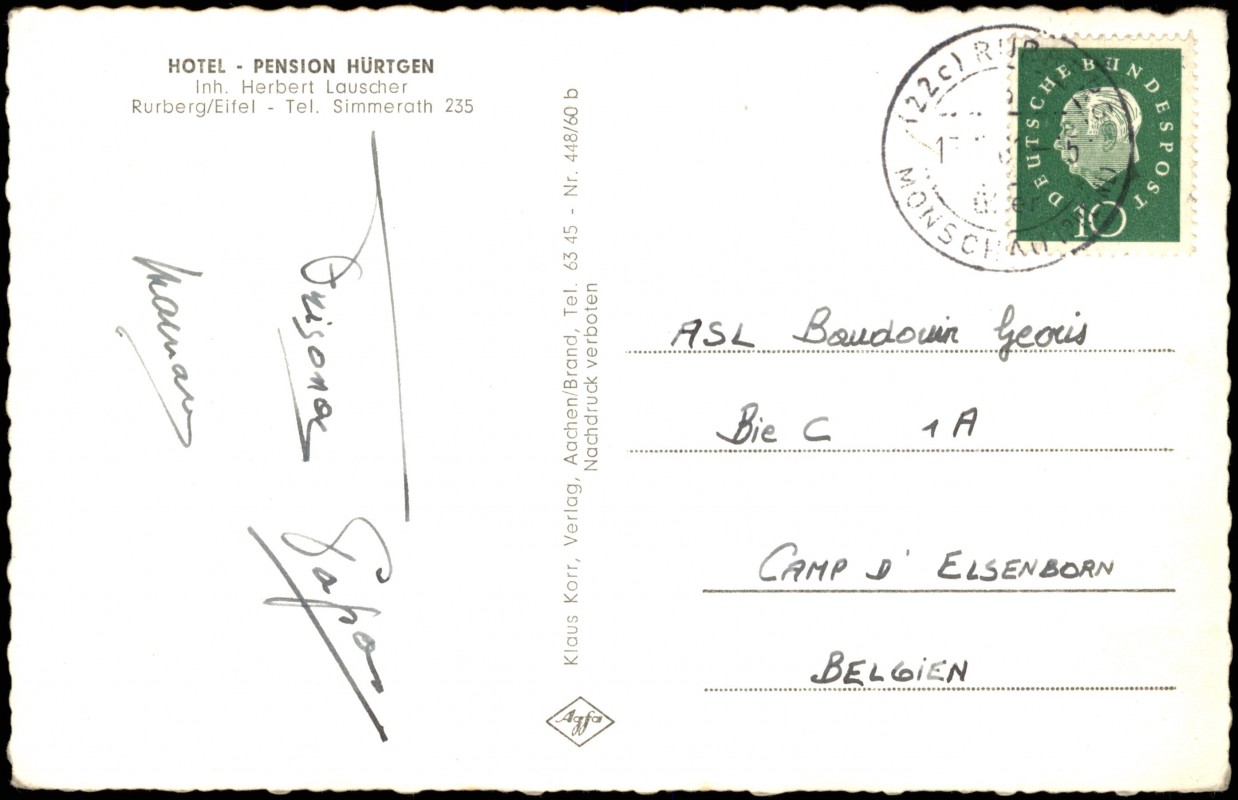 HOTEL - PENSION HÜRTGEN
Inh. Herbert Lauscher
Rurberg/Eifel - Tel. Simmerath 235
Maman
Papa
Klaus Korr, Verlag, Aachen/Brand, Tel. 63 45 - Nr. 448/60 b
Nachdruck verboten
Agfa
(22c) RUR
über
MONSCHAU
DEUTSCHE BUNDESPOST
10
ASL Baudouin Georis
Bie C 1A
CAMP D' ELSENBORN
BELGIEN